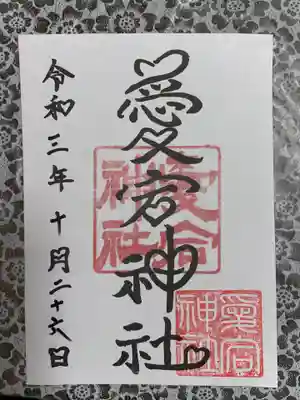 愛宕神社
愛宕
神社
愛宕
神社
令和三年十月二十六日